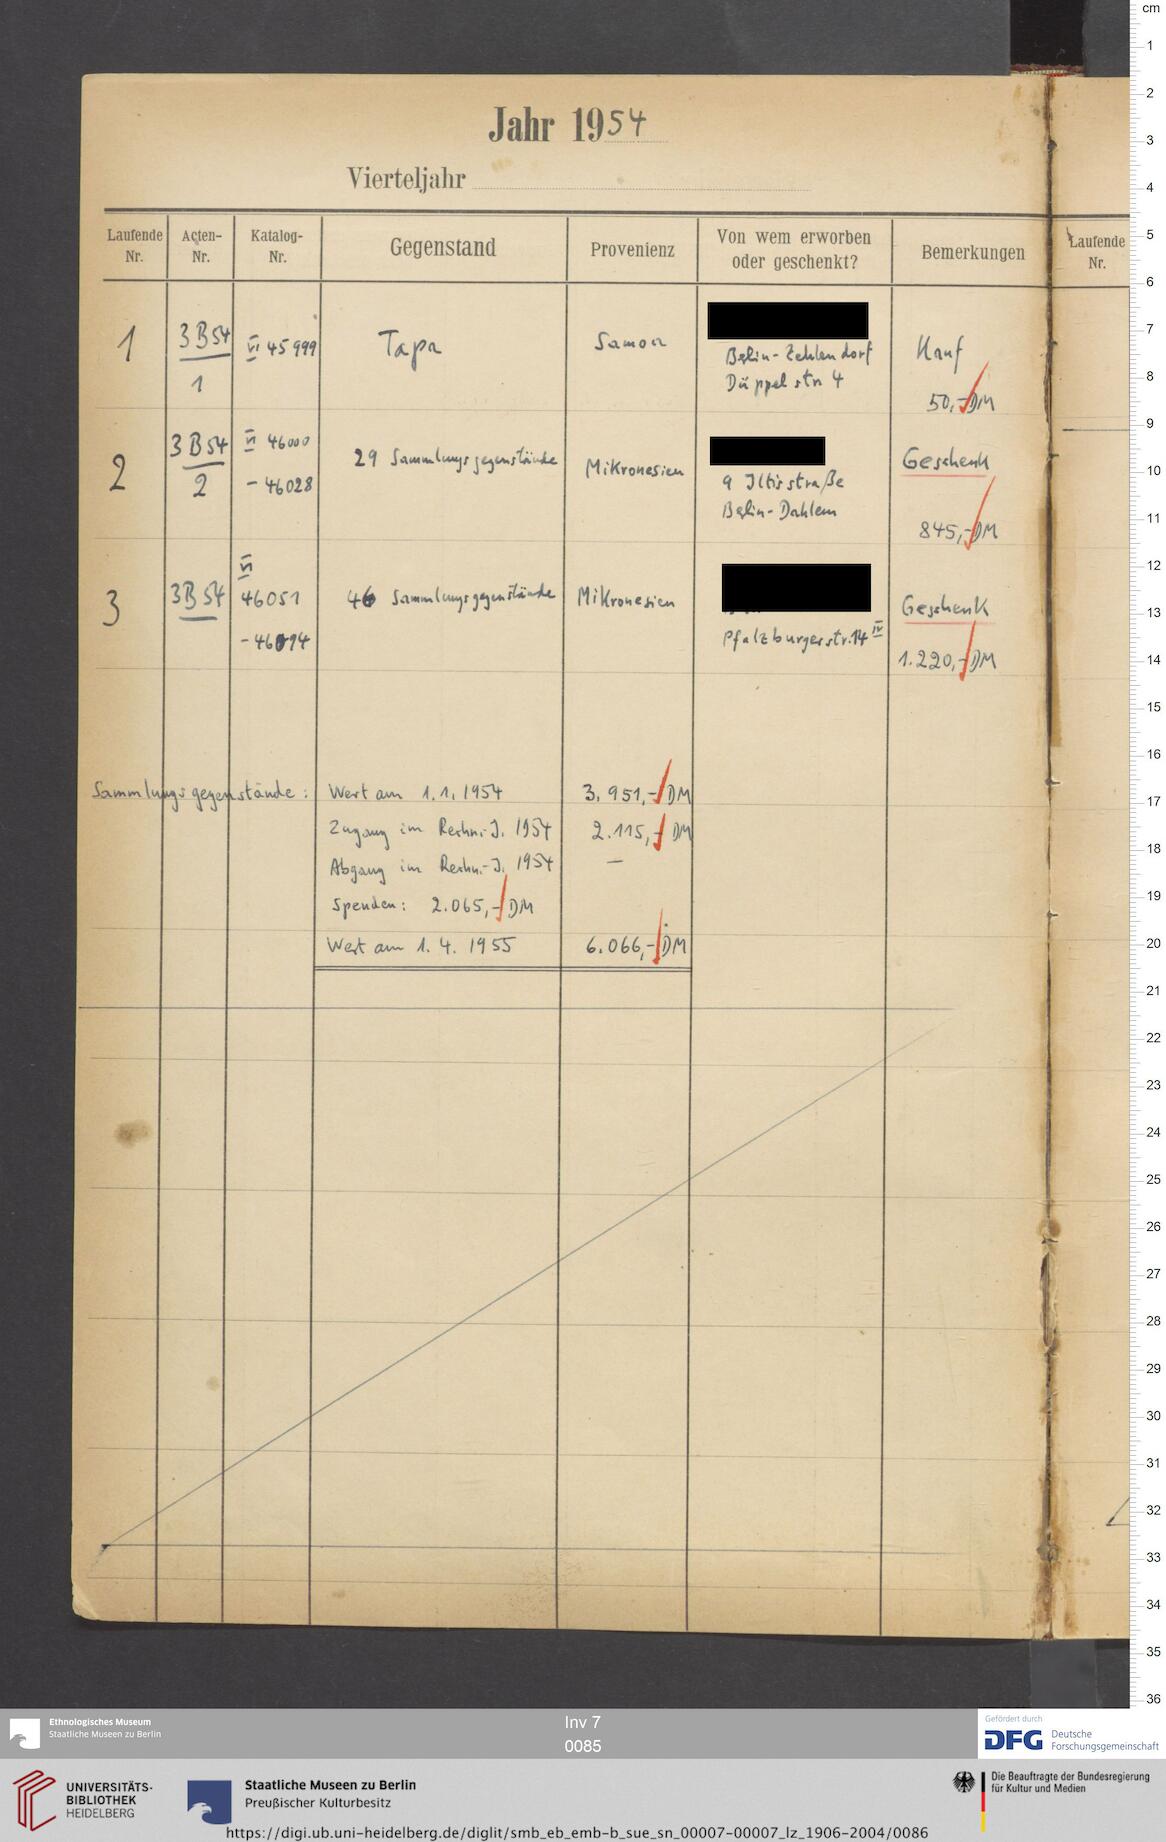 Jahr 1954
Vierteljahr
Laufende Nr.
Acten-Nr.
Katalog-Nr.
Gegenstand
Provenienz
Von wem erworben oder geschenkt?
Bemerkungen
Laufende Nr.
1
3 B 54
1
VI 45999
Tapa
Samoa
Berlin-Zehlendorf
Düppelstr. 4
Kauf
50,- DM
2
3 B 54
2
VI 46000
- 46028
29 Sammlungsgegenstände
Mikronesien
9 Iltisstraße
Berlin-Dahlem
Geschenk
845,- DM
3
3 B 54
VI
46051
- 46094
46 Sammlungsgegenstände
Mikronesien
Pfalzburgerstr. 14 IV
Geschenk
1.220,- DM
Sammlungsgegenstände:
Wert am 1.1.1954 3.951,- DM
Zugang im Rechn.-J. 1954 2.115,- DM
Abgang im Rechn.-J. 1954 –
Spenden: 2.065,- DM
Wert am 1.4.1955 6.066,- DM
cm
1
2
3
4
5
6
7
8
9
10
11
12
13
14
15
16
17
18
19
20
21
22
23
24
25
26
27
28
29
30
31
32
33
34
35
36
Ethnologisches Museum
Staatliche Museen zu Berlin
Inv 7
0085
Gefördert durch
DFG Deutsche
Forschungsgemeinschaft
UNIVERSITÄTS-
BIBLIOTHEK
HEIDELBERG
Staatliche Museen zu Berlin
Preußischer Kulturbesitz
Die Beauftragte der Bundesregierung
für Kultur und Medien
https://digi.ub.uni-heidelberg.de/diglit/smb_eb_emb-b_sue_sn_00007-00007_lz_1906-2004/0086